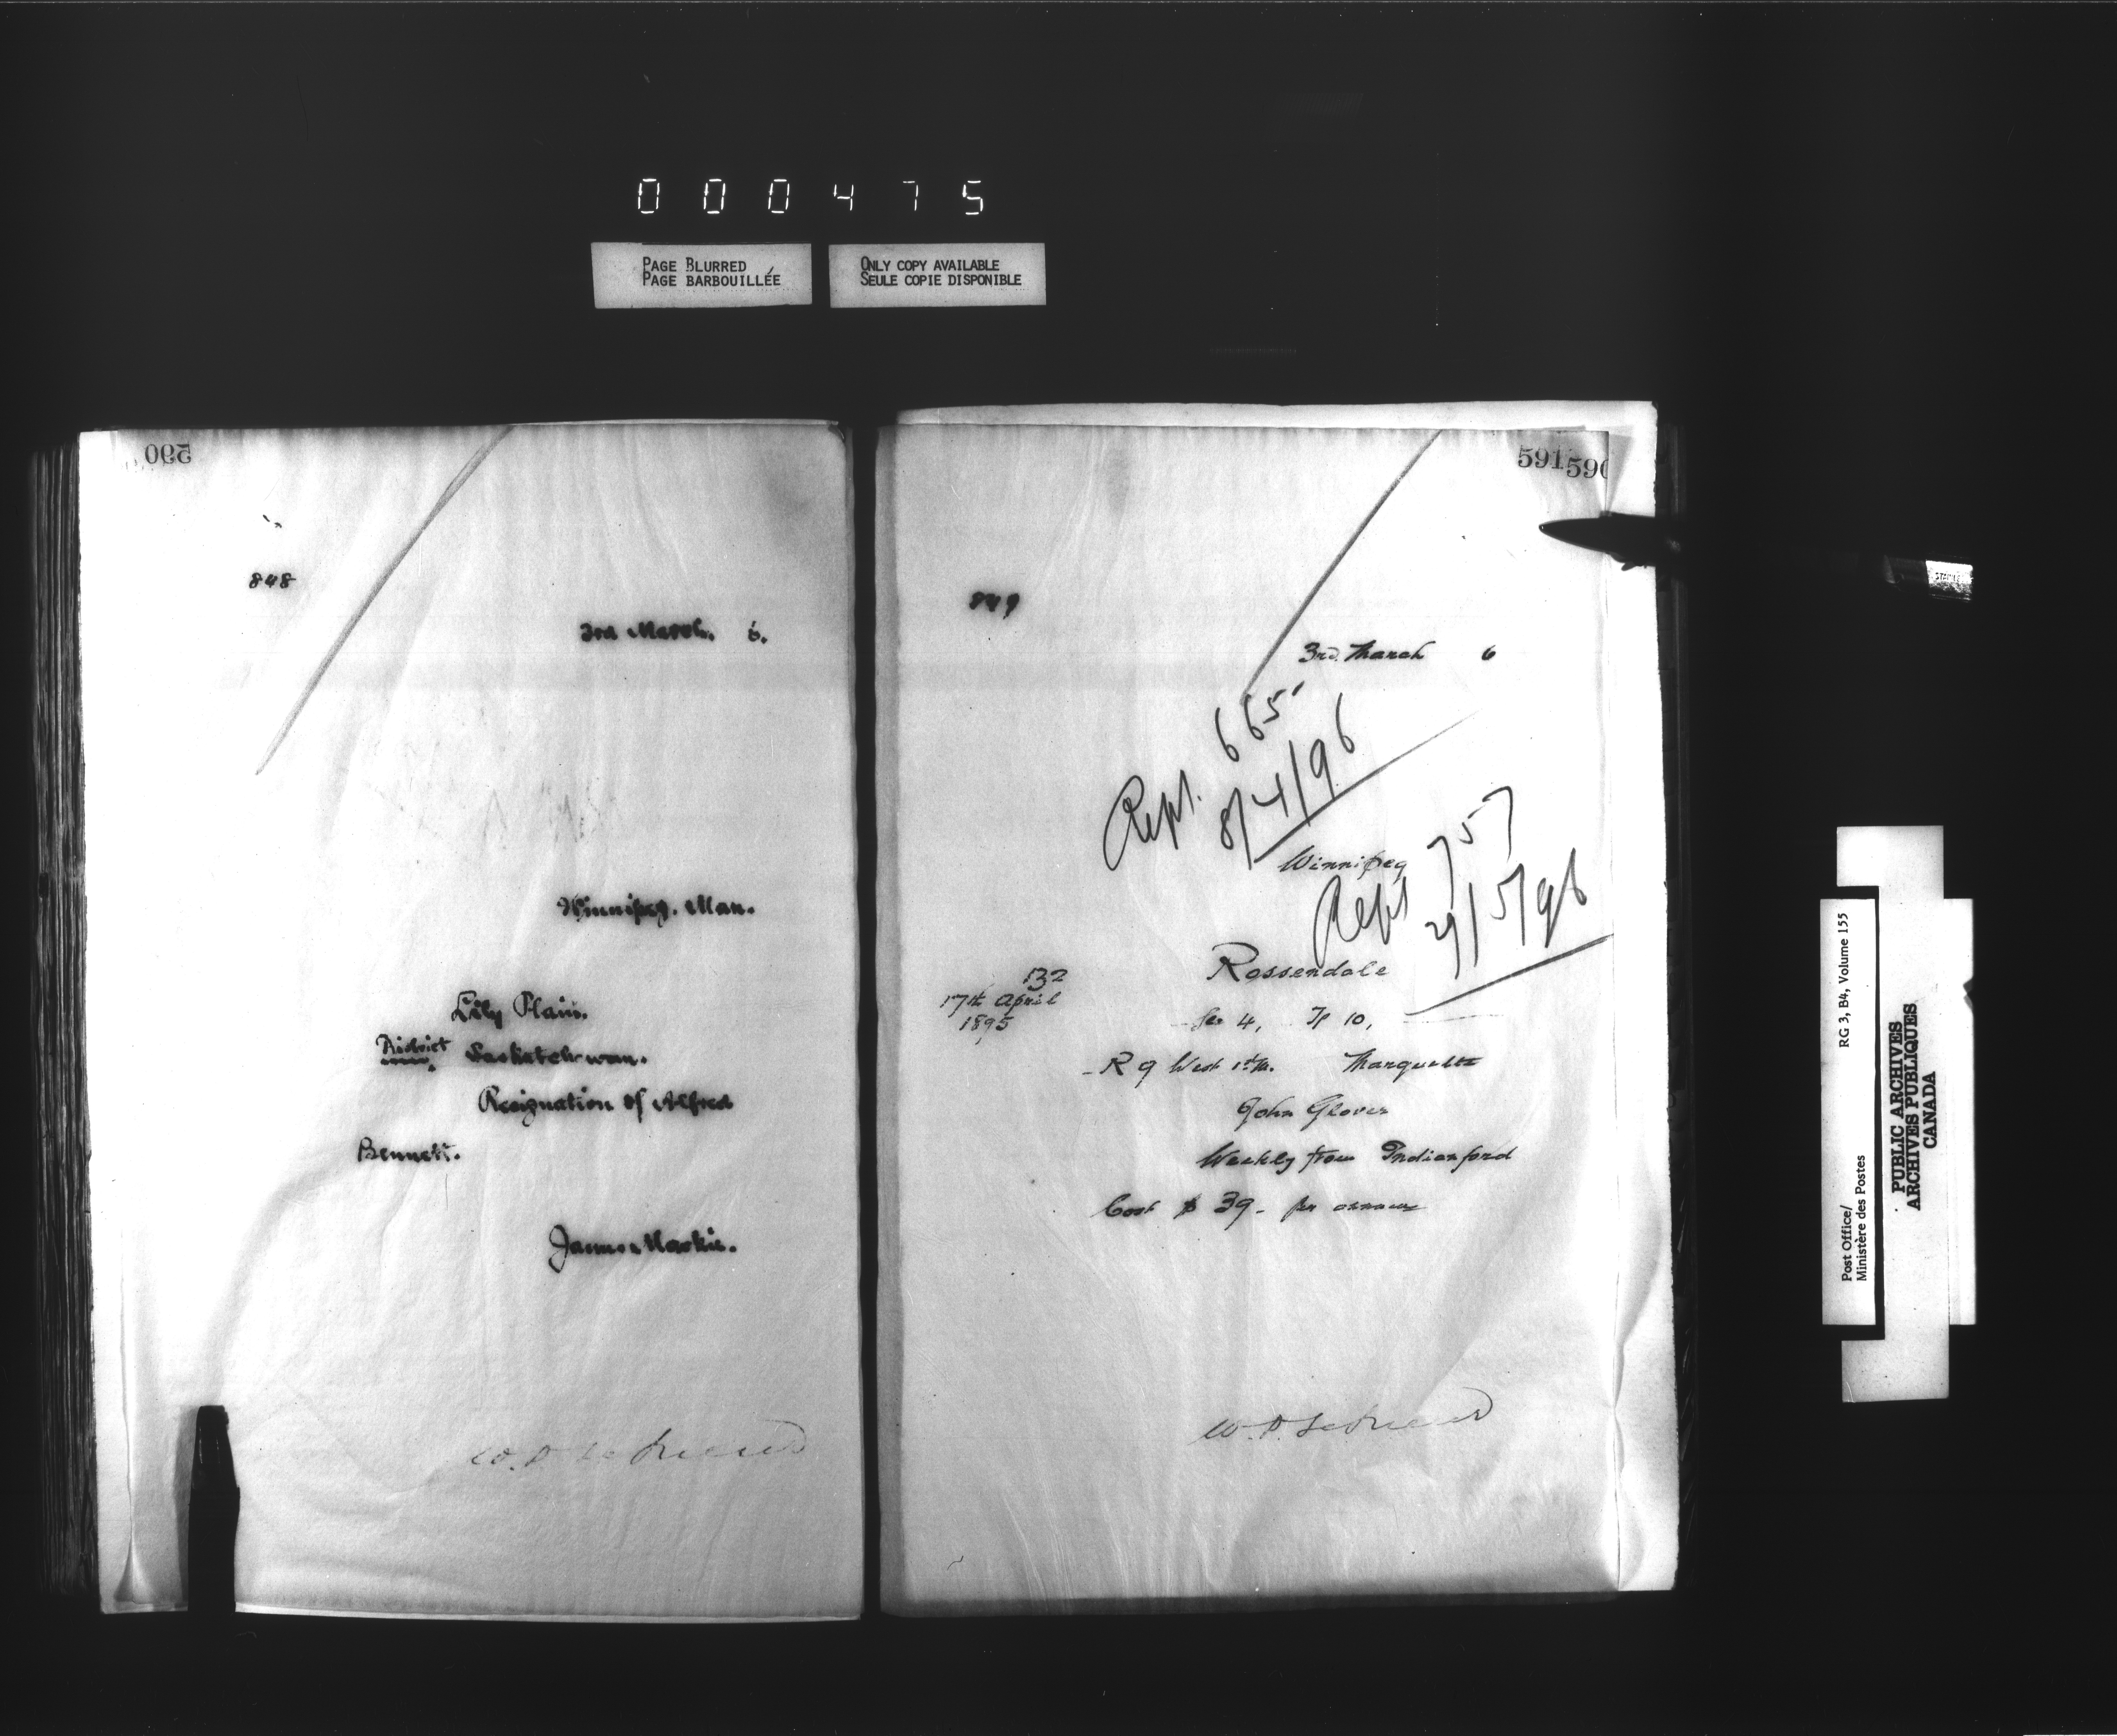 000475
PAGE BLURRED
PAGE BARBOUILLÉE
ONLY COPY AVAILABLE
SEULE COPIE DISPONIBLE
590
848
3rd March. 6.
Winnipeg. Man.
Lily Plain.
District Saskatchewan.
Resignation of Alfred
Bennett.
James Mackie.
591
590
849
3rd. March 6
Rept. 665
8/4/96
Winnipeg
Rept 757
29/5/96
132
17th April
1895
Rossendale
Sec 4, Tp 10,
R 9 West 1st M. Marquette
John Glover
Weekly from Indianford
Cost $ 39- per annum
W. P.
Post Office/
Ministère des Postes
RG 3, B4, Volume 155
PUBLIC ARCHIVES
ARCHIVES PUBLIQUES
CANADA